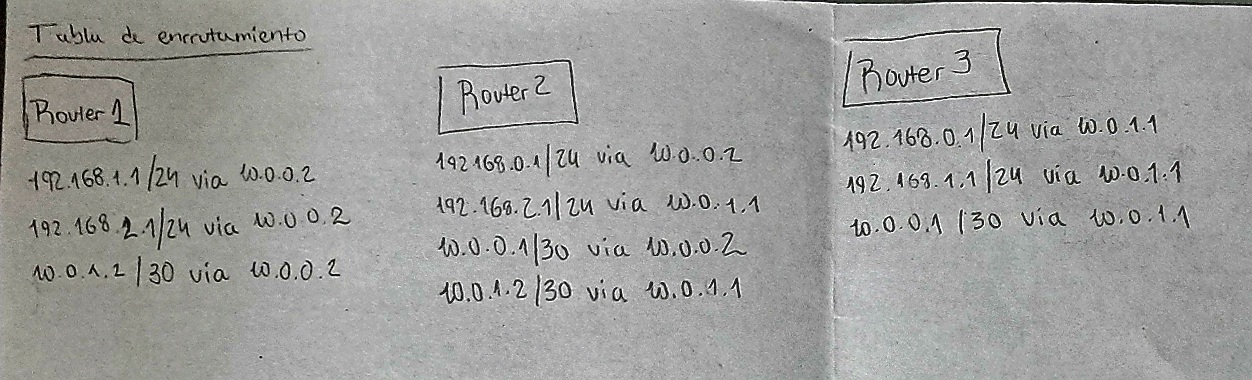 Tabla de enrrutamiento
Router 1
192.168.1.1/24 via 10.0.0.2
192.168.2.1/24 via 10.0.0.2
10.0.1.2/30 via 10.0.0.2
Router 2
192.168.0.1/24 via 10.0.0.2
192.168.2.1/24 via 10.0.1.1
10.0.0.1/30 via 10.0.0.2
10.0.1.2/30 via 10.0.1.1
Router 3
192.168.0.1/24 via 10.0.1.1
192.168.1.1/24 via 10.0.1.1
10.0.0.1/30 via 10.0.1.1